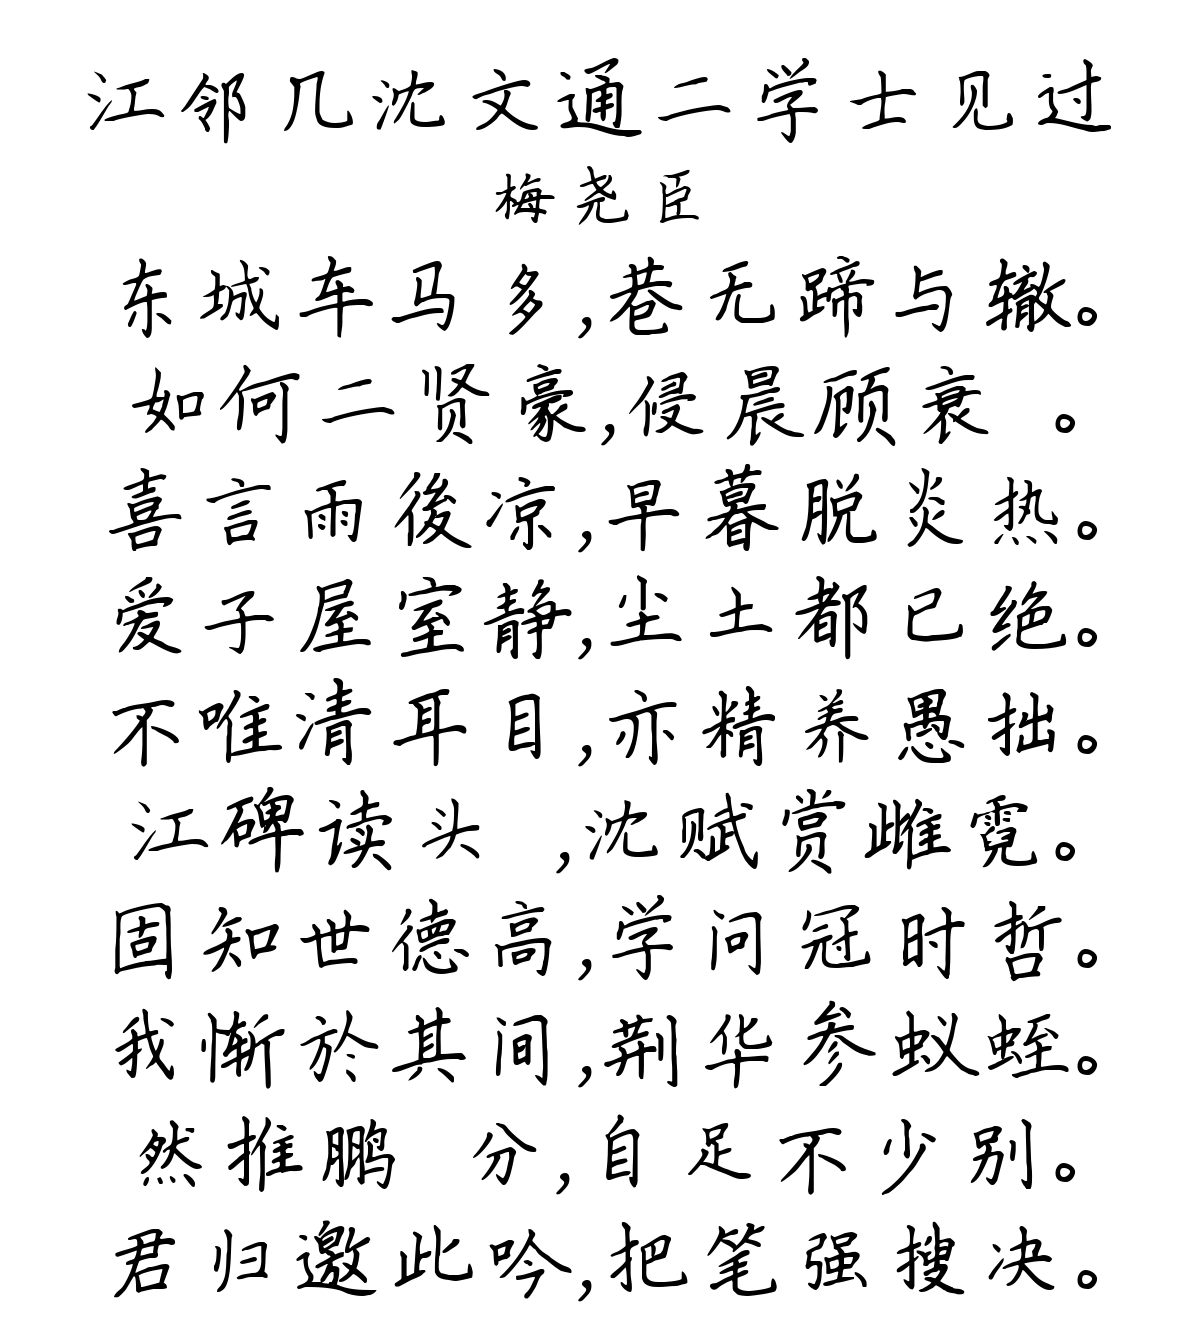 江邻几沈文通二学士见过
梅尧臣
东城车马多,巷无蹄与辙。
如何二贤豪,侵晨顾衰 。
喜言雨後凉,早暮脱炎热。
爱子屋室静,尘土都已绝。
不唯清耳目,亦精养愚拙。
江碑读头 ,沈赋赏雌霓。
固知世德高,学问冠时哲。
我惭於其间,荆华参蚁蛭。
然推鹏 分,自足不少别。
君归邀此吟,把笔强搜决。